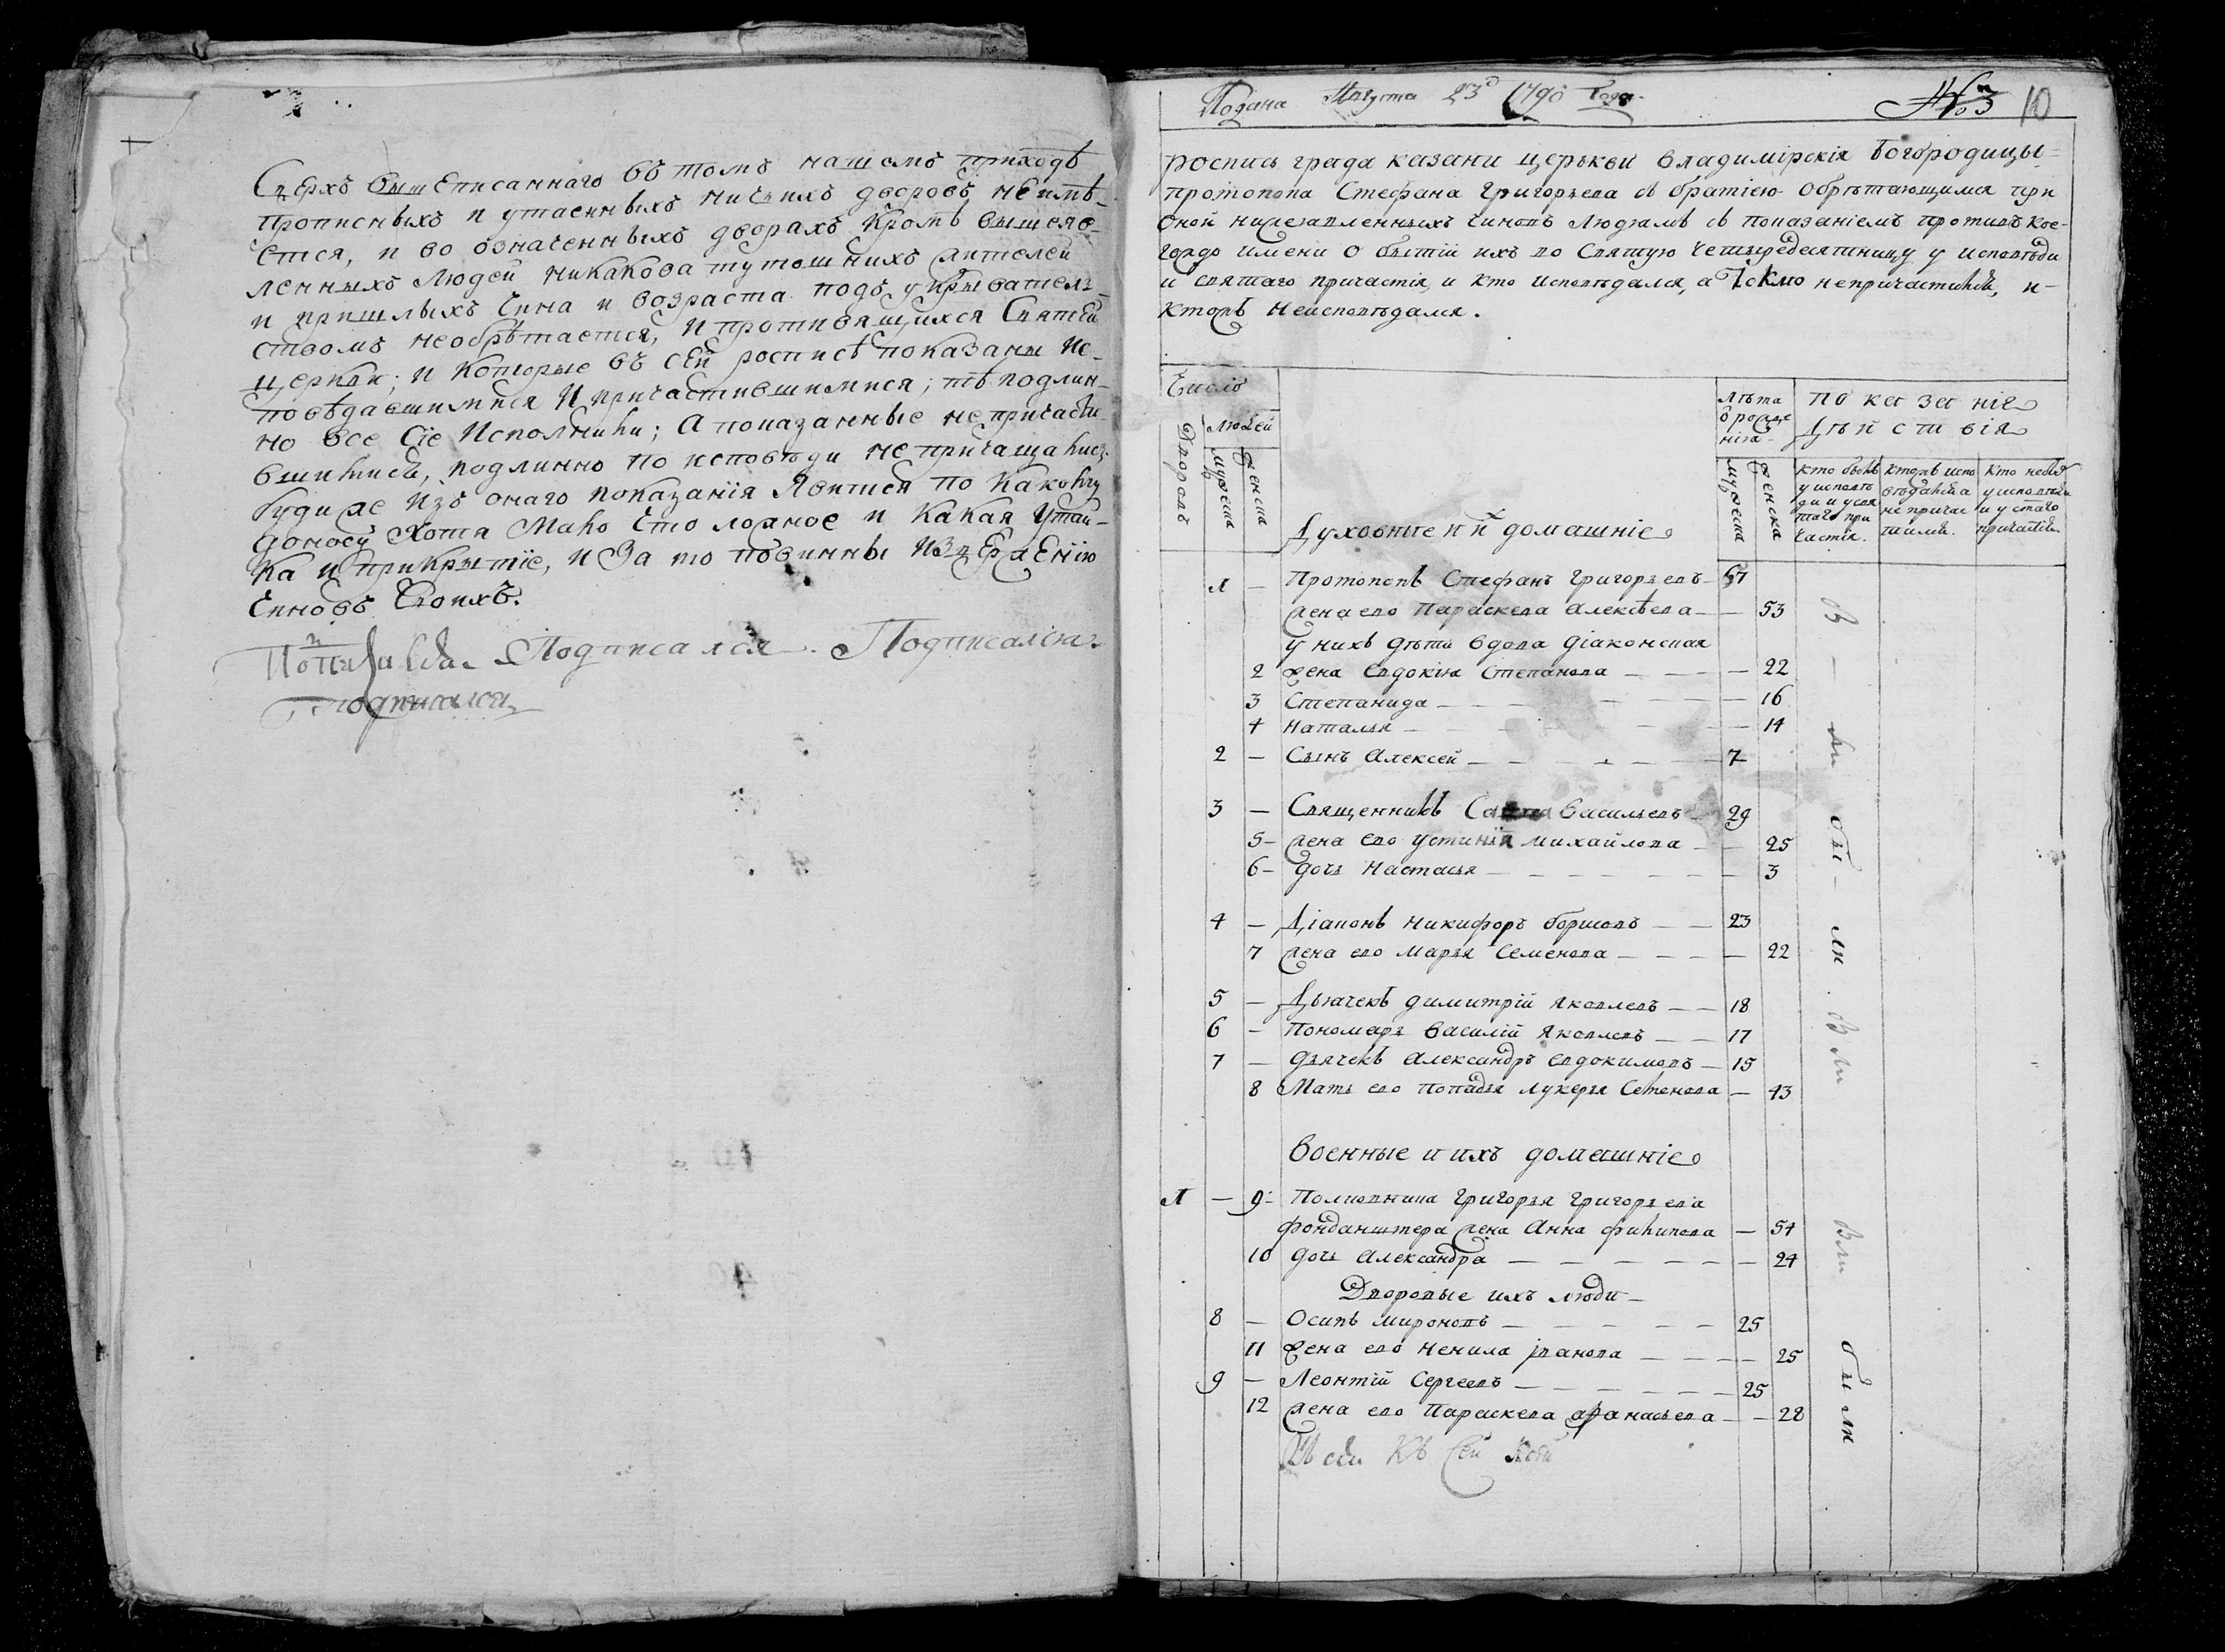 Сверхъ вышеписаннаго въ томъ нашемъ приходѣ
прописныхъ и утаенныхъ ничьихъ дворовъ не имѣ-
ется, и во означенныхъ дворахъ кромѣ вышеяв-
ленныхъ людей никакова тутошнихъ жителей
и пришлыхъ чина и возраста подъ укрывател-
ствомъ необрѣтается, и противящихся святѣй
церкви; и которые въ сей росписѣ показаны ис-
повѣдавшимися и причастившимися; тѣ подлин-
но все сіе исполнили; а показанные непричасти-
вшимись, подлинно по исповѣди не причащались.
буди же изъ онаго показанія явится по какому
доносу хотя мало что ложное и какая утай-
ка и прикрытіе, и за то повинны изверженію
чиновъ своихъ.
Подписался. Подписался
Подписался
Подана Августа 23 1790 года
№ 3 10
роспись града казани церькви владимірскія богородицы
протопопа Стефана Григорьева съ братіею обрѣтающимся при
оной нижеявленныхъ чиновъ людямъ съ показаніемъ противъ кое-
гождо имени о бытіи ихъ во святую четыредесятницу у исповѣди
и святаго причастія, и кто исповѣдался, а токмо непричастился, и
ктожъ неисповѣдался.
Число
Дворовъ
Людей
мужеска
женска
лѣта
ѿ рожде
нія
мужеска
женска
показаніе
дѣйствія
кто былъ
у исповѣ
ди и у свя
таго при
частія.
ктожъ испо
вѣдался
а не причас
тился.
кто небылъ
у исповѣди
и у с͠таго
причастія.
Духовные и ихъ домашніе
1 — Протопопъ Стефанъ Григорьевъ — 57
жена ево Параскева Алексѣева — — 53
у нихъ дѣти вдова діаконская
2 жена Евдокіа Степанова — — 22
3 Степанида — — 16
4 Наталья — — 14
2 — Сынъ Алексей — 7
3 — Священникъ Васильевъ 29
5 — жена ево Устинія Михайлова — — 25
6 — дочь Настасья — — 3
4 — Діаконъ Никифоръ Борисовъ — — 23
7 жена ево Марья Семенова — — 22
5 — Дьячекъ Димитрій Яковлевъ — — 18
6 — Пономарь Василій Яковлевъ — — 17
7 — Дьячекъ Александръ Евдокимовъ — 15
8 Мать ево попадья Лукерья Семенова — 43
Военные и ихъ домашніе
1 — 9 — Полковника Григорья Григорьева
жена Анна Филипова — 54
10 дочь Александра — — 24
Дворовые ихъ люди —
8 — Осипъ Мироновъ — 25
11 жена ево Ненила Іванова — — 25
9 — Леонтій Сергеевъ — 25
12 жена ево Параскева Афанасьева — — 28
Къ сей